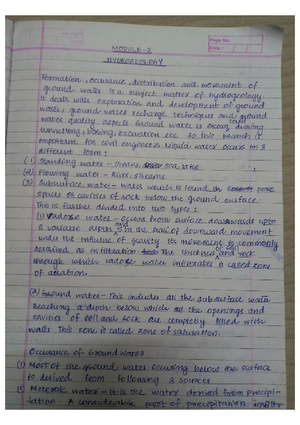 Page No.
Date
MODULE-2
HYDROGEOLOGY
Formation, occurance, distribution and movement of
ground water is a subject matter of hydrogeology
It deals with exploration and development of ground
water, ground water recharge techniques and ground
water quality aspects Ground water is occurs during
tunnelling, mining, excavation etc so this branch is
important for civil engineers Liquid water occurs in 3
different form:
(1) Standing water - Oceans, sea, lake
(2) Flowing water - River, streams
(3) Subsurface water - Water which is found in pore
spaces or cavities of rock below the ground surface
This is further divided into two types:
(i) Vadose water - occurs from surface downwards upto
a variable depth is in the of downward movement
under the influence of gravity Its movement is commonly
described as infiltration The thickness of soil and rock
through which vadose water infiltrates is called zone
of aeration.
(ii) Ground water - This includes all the subsurface water
reaching a depth below which all the openings and
cavities of soil and rock are completly filled with
water This zone is called zone of saturation.
Occurance of Ground water
(1) Most of the ground water occuring below the surface
is derived from following 3 sources
(i) Meteoric water - It is the water derived from precipi-
tation. A considerable part of precipitation